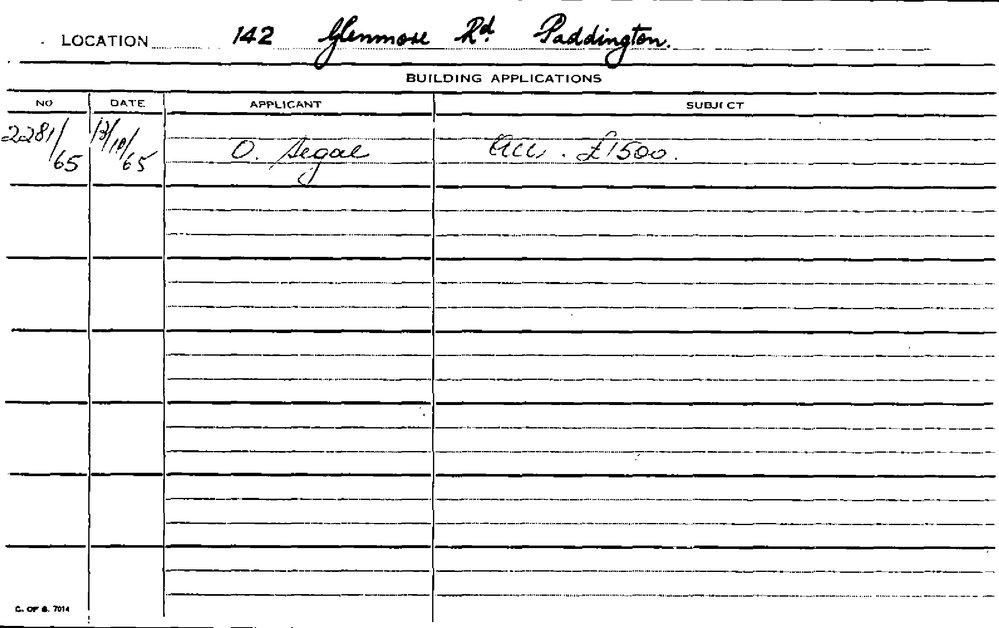 LOCATION 142 Glenmore Rd Paddington.
BUILDING APPLICATIONS
NO DATE APPLICANT SUBJECT
2281/65 13/10/65 O. Segal £1500.
C. OF S. 7014